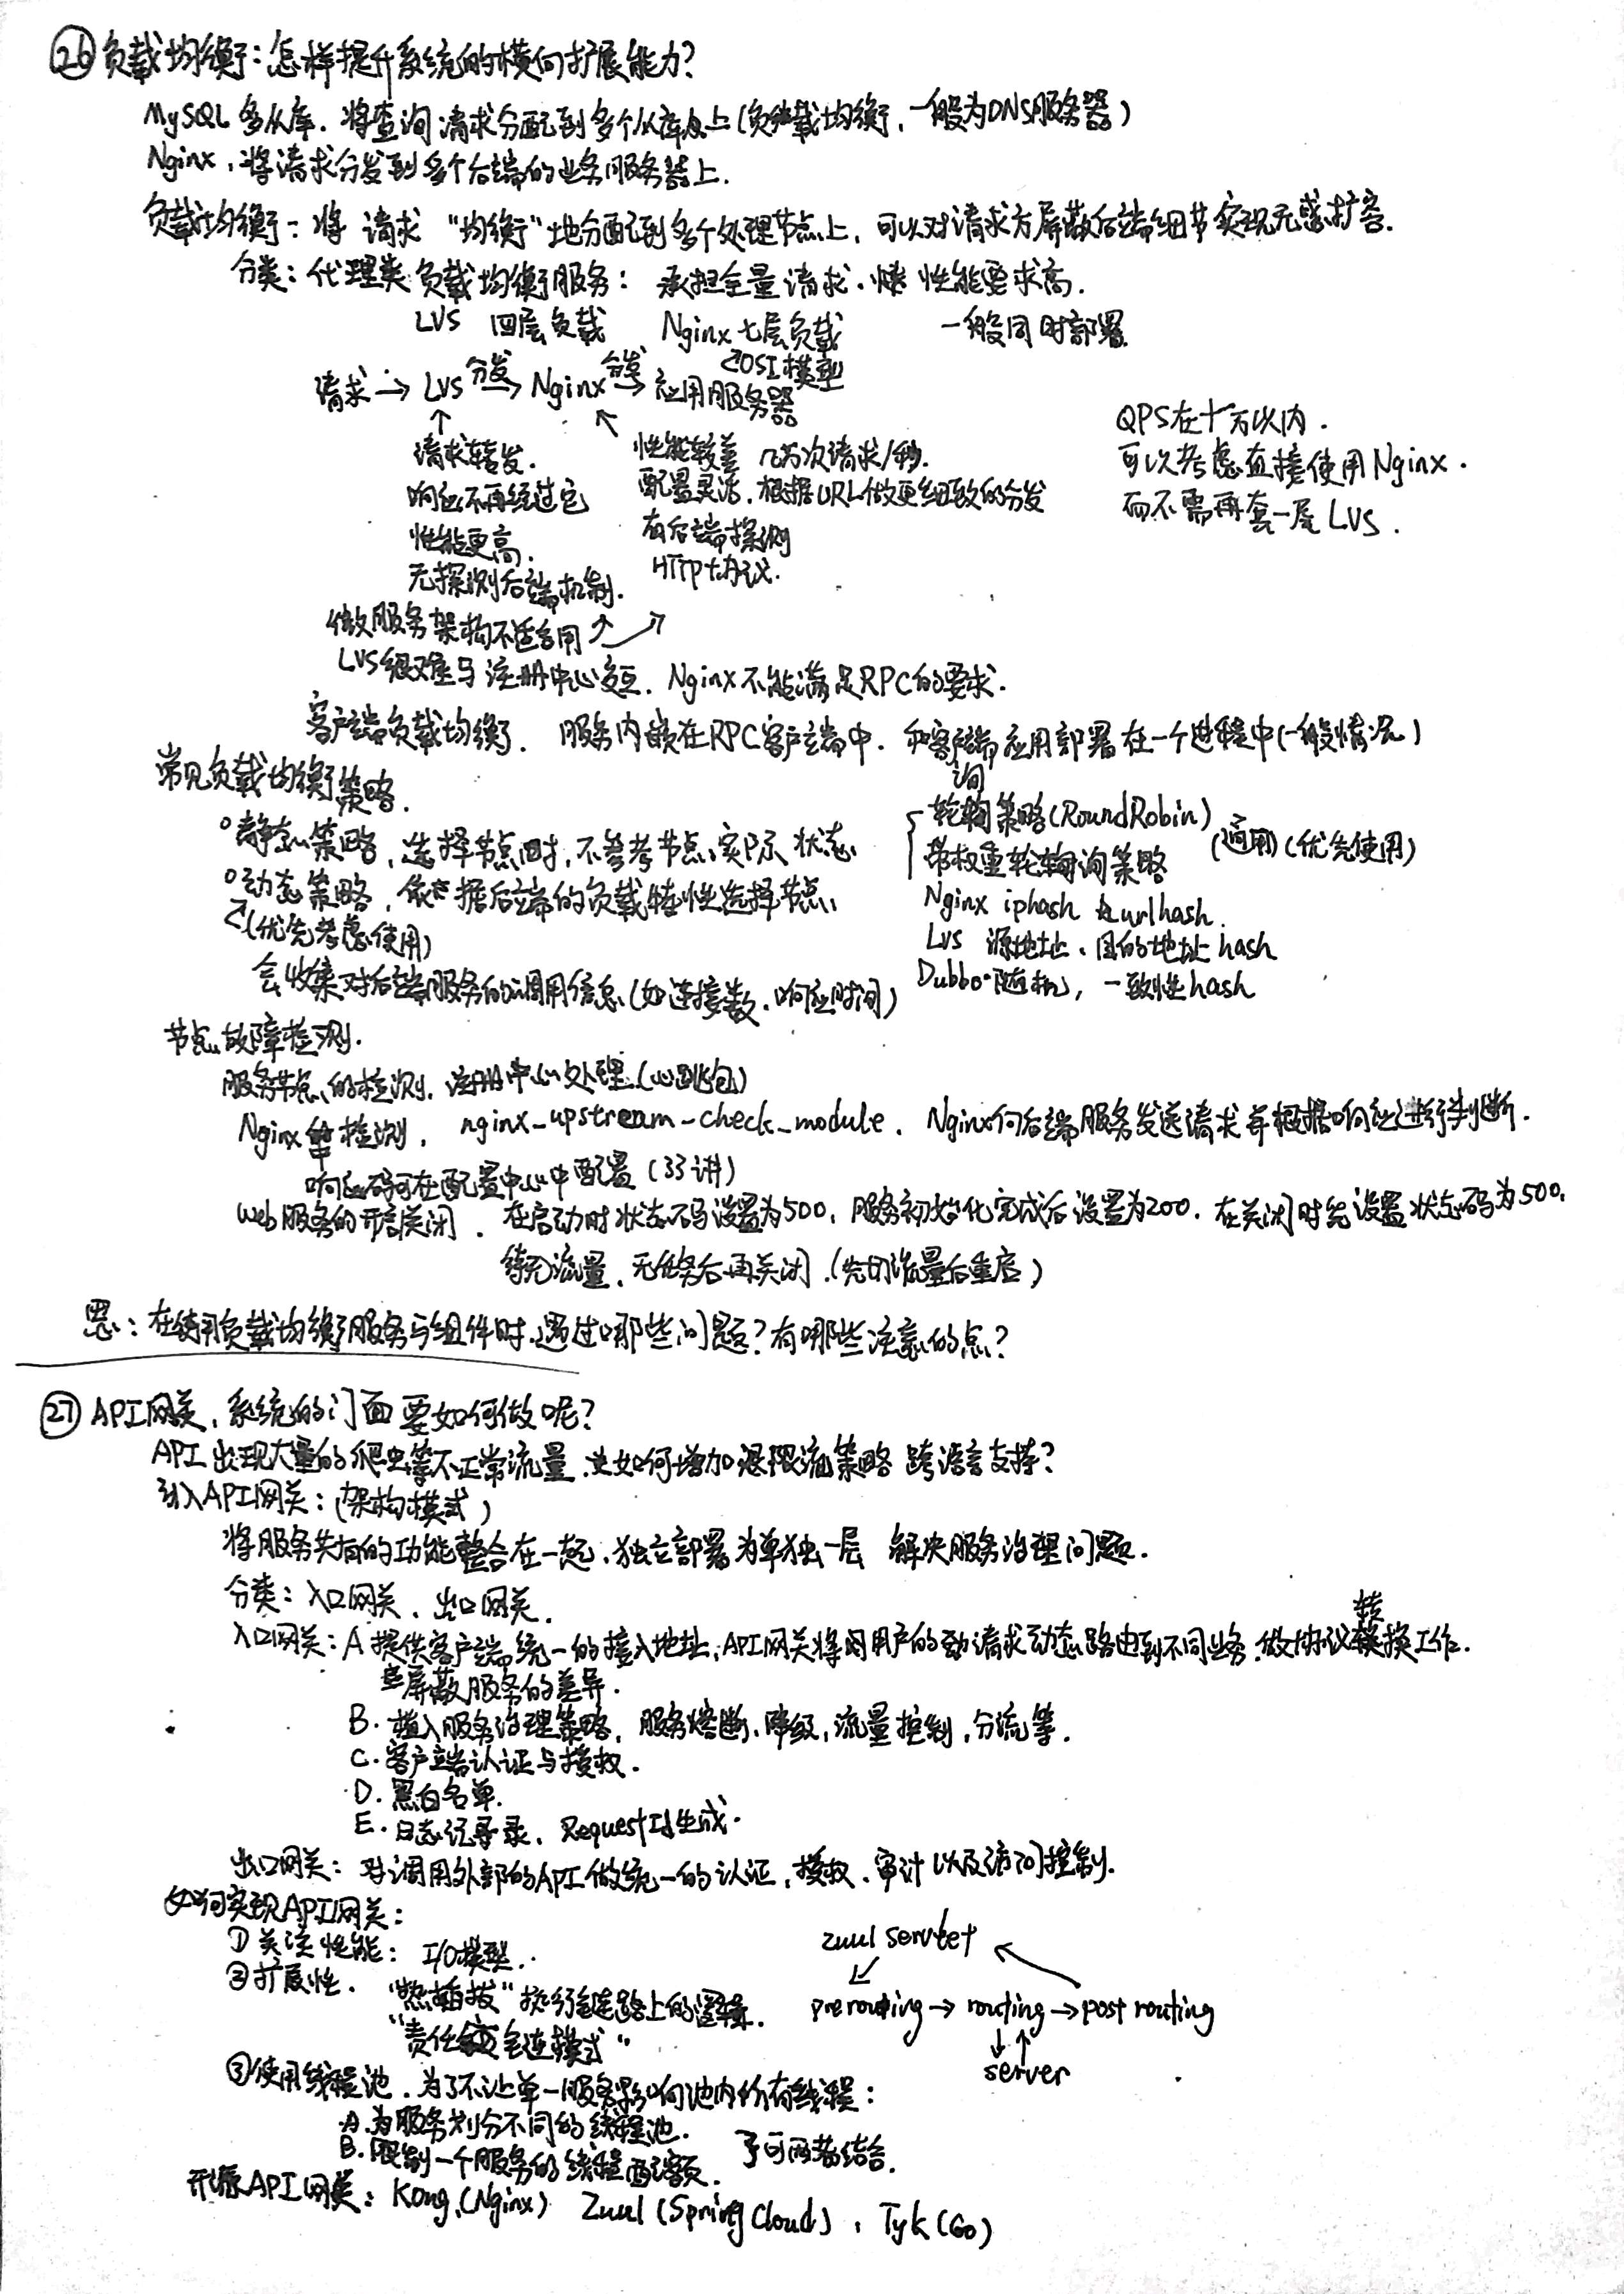 26 负载均衡：怎样提升系统的横向扩展能力？
MySQL 多从库．将查询请求分配到多个从库上（负载均衡，一般为DNS服务器）
Nginx，将请求分发到多个后端的业务服务器上．
负载均衡：将 请求 “均衡”地分配到多个处理节点上，可以对请求方屏蔽后端细节实现无感扩容．
分类：代理类 负载均衡服务： 承担全量请求．性能要求高．
LVS 四层负载 Nginx 七层负载 一般同时部署
OSI模型
请求 → LVS 分发→ Nginx 分发→ 应用服务器
QPS在十万以内．
可以考虑直接使用Nginx．
而不需再套一层 LVS．
请求转发．
响应不再经过它
性能更高．
无探测后端机制．
性能较差 几万次请求/秒．
配置灵活．根据URL做更细致的分发
有后端探测
HTTP协议．
微服务架构不适合用
LVS很难与注册中心交互．Nginx不能满足RPC的要求．
客户端负载均衡． 服务内嵌在RPC客户端中．和客户端应用部署在一个进程中（一般情况）
常见负载均衡策略．
静态策略，选择节点时，不参考节点实际状态
动态策略，依据后端的负载特性选择节点
（优先考虑使用）
会收集对后端服务的调用信息（如连接数．响应时间）
轮询策略（RoundRobin）
带权重轮询策略
（通用）（优先使用）
Nginx iphash urlhash
LVS 源地址、目的地址hash
Dubbo·随机，一致性hash
节点故障检测．
服务节点的检测．注册中心处理（心跳包）
Nginx中检测． nginx_upstream_check_module． Nginx向后端服务发送请求并根据响应进行判断．
响应码可在配置中心中配置（33讲）
Web服务的开启关闭．在启动时状态码设置为500，服务初始化完成后设置为200．在关闭时先设置状态码为500，
待无流量、无任务后再关闭．（先切流量后重启）
思：在使用负载均衡服务与组件时遇过哪些问题？有哪些注意的点？
27 API网关，系统的门面要如何做呢？
API 出现大量的爬虫等不正常流量，如何增加限流策略 跨语言支持？
引入API网关：（架构模式）
将服务共有的功能整合在一起，独立部署为单独一层 解决服务治理问题．
分类：入口网关、出口网关．
入口网关：A 提供客户端统一的接入地址，API网关将用户的请求动态路由到不同业务．做协议转换工作．
屏蔽服务的差异．
B．植入服务治理策略，服务熔断、降级，流量控制，分流等．
C．客户端认证与授权．
D．黑白名单．
E．日志记录、RequestId生成．
出口网关：对调用外部的API做统一的认证，授权、审计以及访问控制．
如何实现API网关：
① 关注性能： I/O模型．
② 扩展性． “热插拔”执行链路上的逻辑．
“责任链模式”
zuul servlet
prerouting → routing → post routing
server
③ 使用线程池．为了不让单一服务影响池内所有线程：
A．为服务划分不同的线程池．
B．限制一个服务的线程配额．
可两者结合．
开源API网关：Kong（Nginx） Zuul（Spring Cloud）， Tyk（Go）